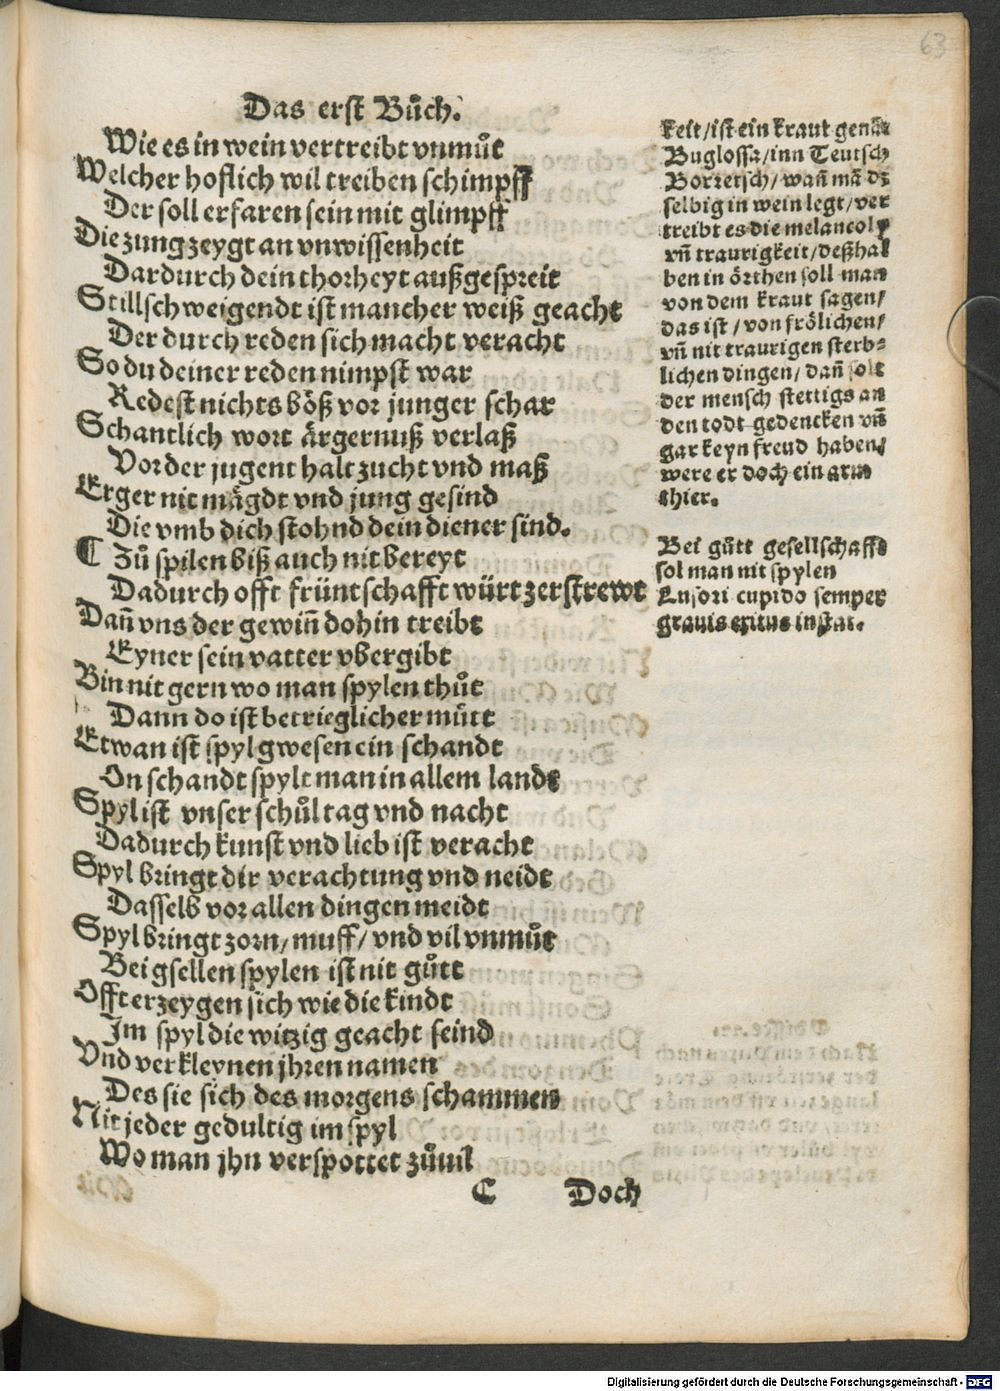 63
Das erst Bůch.
Wie es in wein vertreibt vnmůt
Welcher hoflich wil treiben schimpff
Der soll erfaren sein mit glimpff
Die zung zeygt an vnwissenheit
Dardurch dein thorheyt außgespreit
Stillschweigendt ist mancher weiß geacht
Der durch reden sich macht veracht
So du deiner reden nimpst war
Redest nichts böß vor junger schar
Schantlich wort ärgernuß verlaß
Vor der jugent halt zucht vnd maß
Erger nit mägdt vnd jung gesind
Die vmb dich stohnd dein diener sind.
¶ Zů spilen biß auch nit bereyt
Dadurch offt früntschafft würt zerstrewt
Dañ vns der gewiñ dohin treibt
Eyner sein vatter vbergibt
Bin nit gern wo man spylen thůt
Dann do ist betrieglicher můtt
Etwan ist spyl gwesen ein schandt
On schandt spylt man in allem landt
Spyl ist vnser schůl tag vnd nacht
Dadurch kunst vnd lieb ist veracht
Spyl bringt dir verachtung vnd neidt
Dasselb vor allen dingen meidt
Spyl bringt zorn/ muff/ vnd vil vnmůt
Bei gsellen spylen ist nit gůtt
Offt erzeygen sich wie die kindt
Im spyl die witzig geacht seind
Vnd verkleynen jhren namen
Des sie sich des morgens schammen
Nit jeder gedultig im spyl
Wo man jhn verspottet zůuil
C Doch
keit/ ist ein kraut genāt
Buglossa/ inn Teutsch
Borretsch/ wañ mā dz
selbig in wein legt/ ver
treibt es die melancoly
vñ traurigkeit/ deßhal
ben in örthen soll man
von dem kraut sagen/
das ist/ von frölichen/
vñ nit traurigen sterb⸗
lichen dingen/ dañ solt
der mensch stettigs an
den todt gedencken vñ
gar keyn freud haben/
were er doch ein arm
thier.
Bei gůtt gesellschafft
sol man nit spylen
Lusori cupido semper
grauis exitus instat.
Digitalisierung gefördert durch die Deutsche Forschungsgemeinschaft - DFG